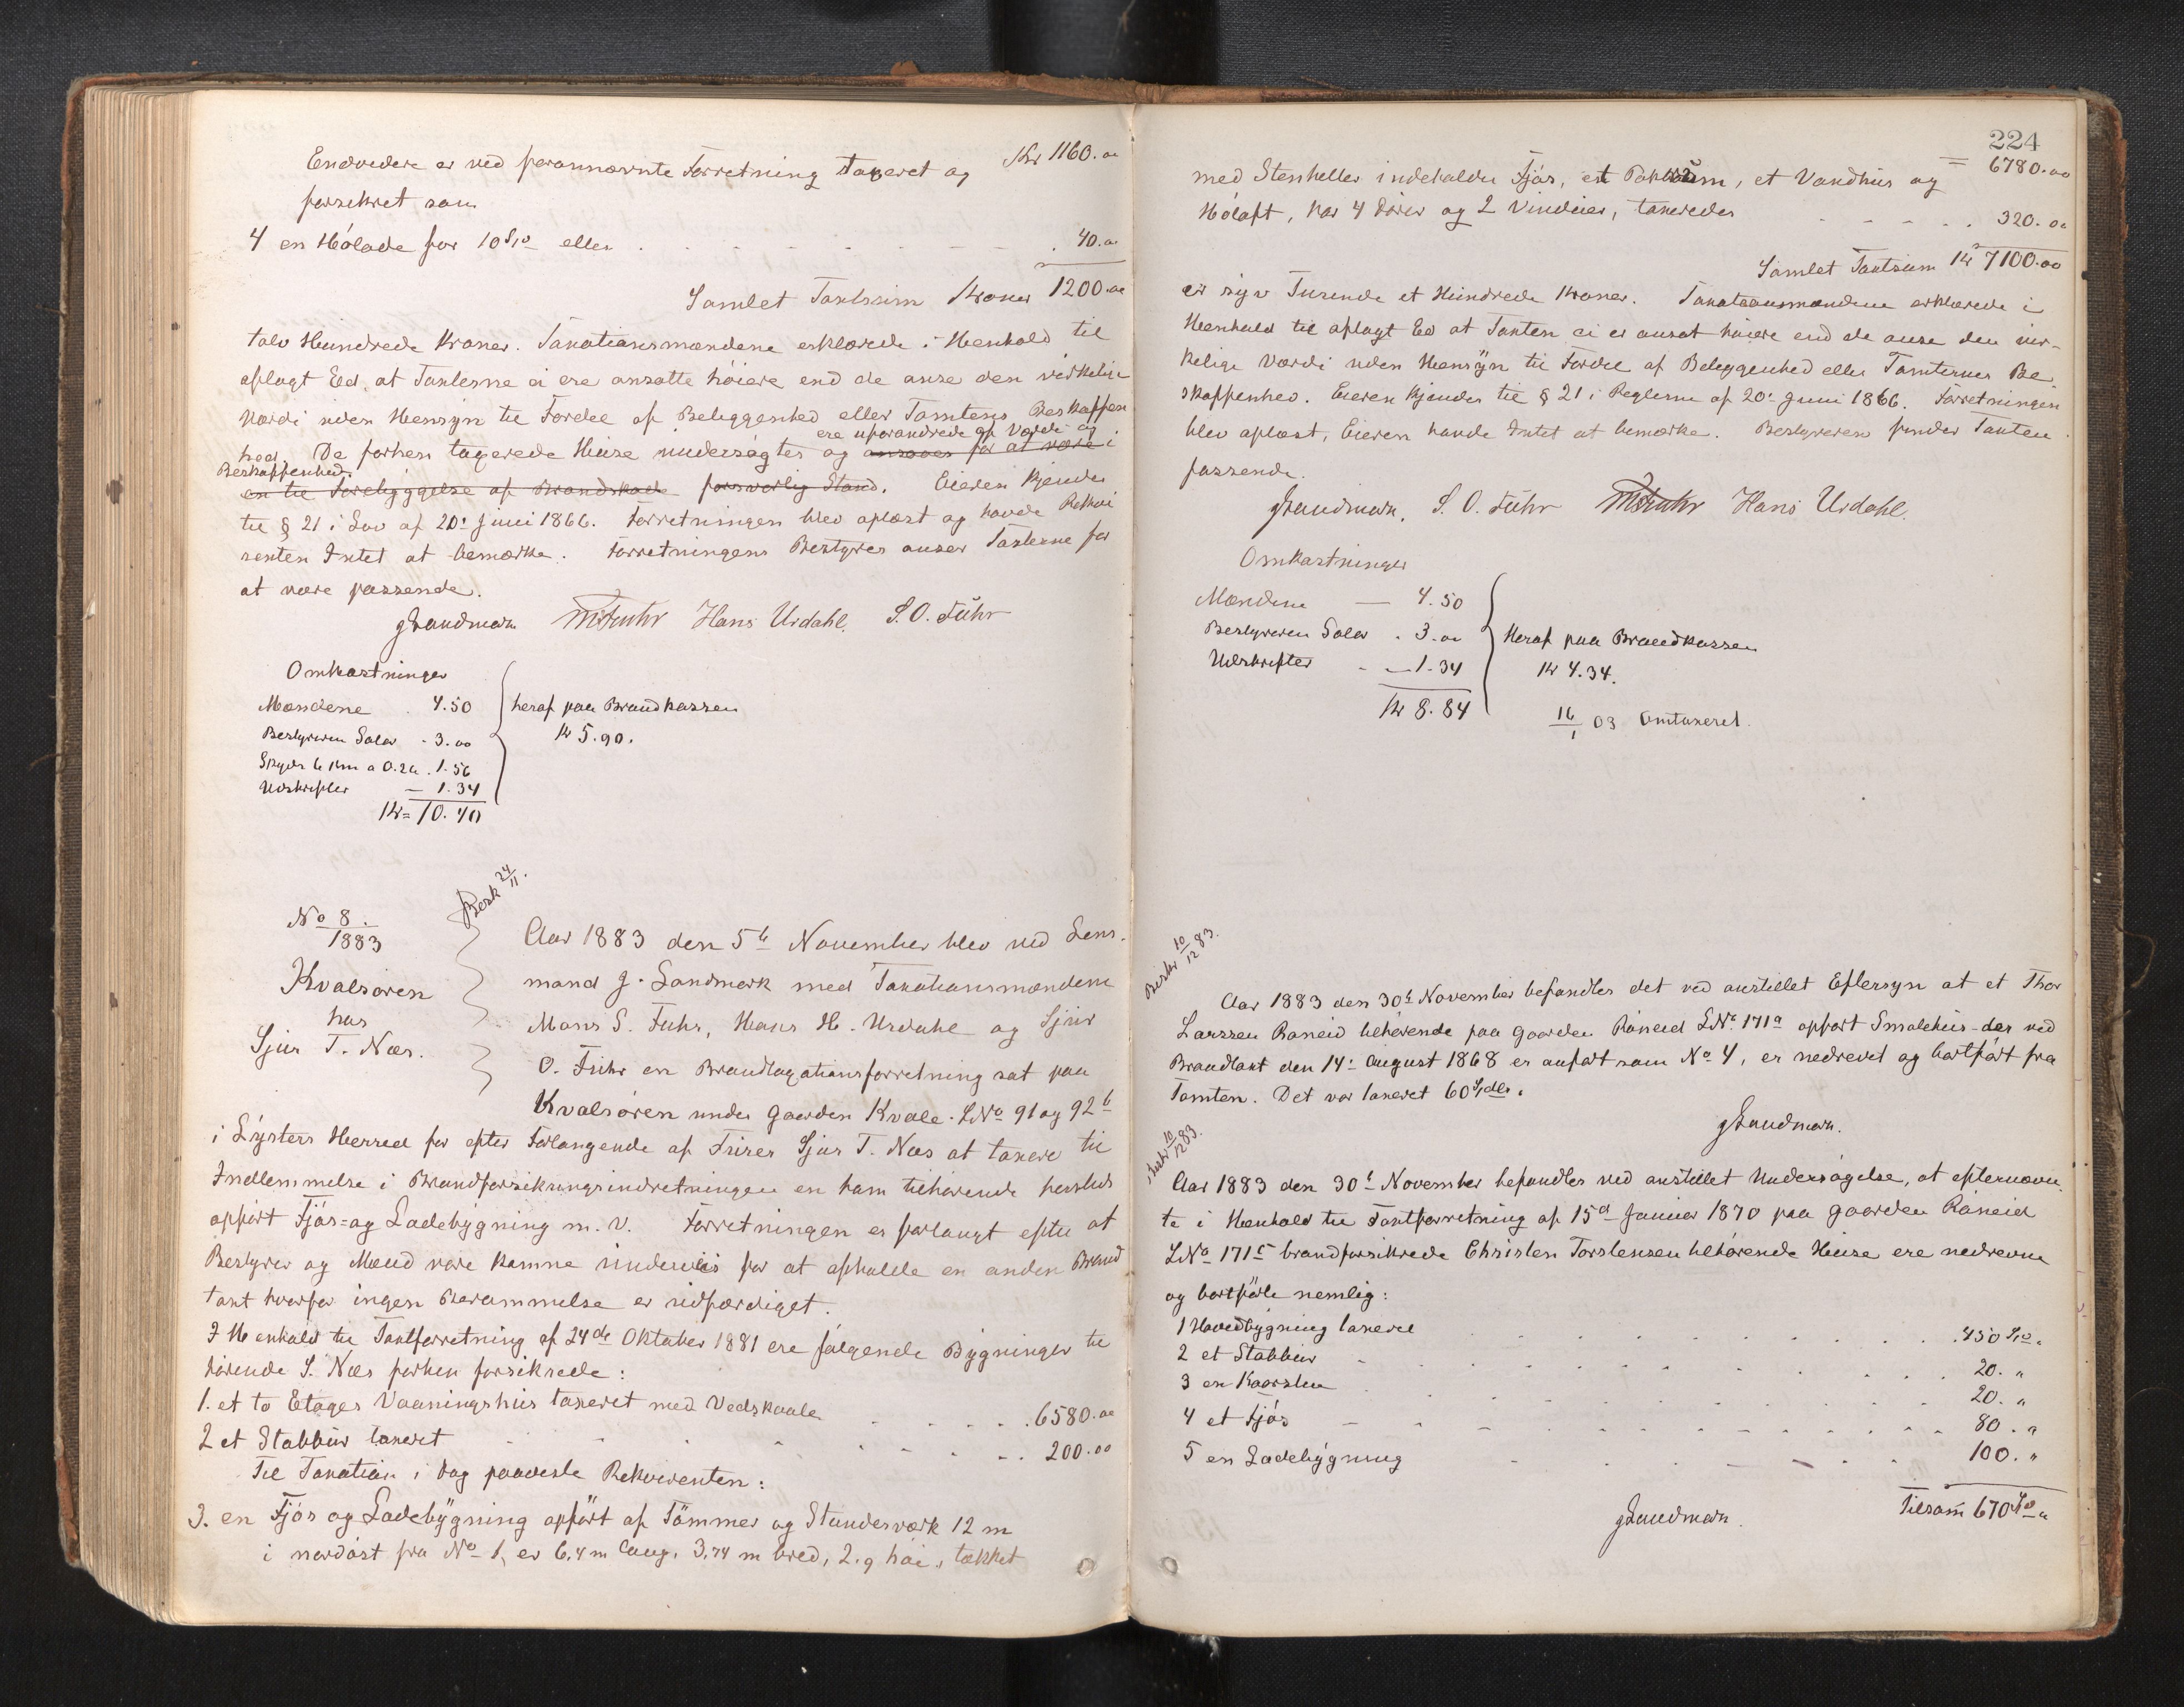 Endvidere er ved forannævnte Forretning taxeret og Kr 1160.00
forsikret som
4 en Hölade for 10 Spd eller . . . . . 40.00
Samlet Taxtsum Kroner 1200.00
tolv Hundrede Kroner. Taxationsmændene erklærede i Henhold til
aflagt Eed, at Taxterne ei ere ansatte höiere end de anse den virkelige
Værdi uden Hensyn til Fordel af Beliggenhed eller Tomtens Beskaffen
hed. De forhen taxerede Huse undersögtes og ansaaes for at være i
ere uforandrede af Værdi og
Beskaffenhed
en til Forebyggelse af Brandskade forsvarlig Stand. Eieren kjender
til § 21 i Lov af 20de Juni 1866. Forretningen blev oplæst og havde Rekvi
renten Intet at bemærke. Forretningens Bestyrer anser Taxterne for
at være passende.
G Landmark MSFuhr Hans Urdahl. S. O. Fuhr
Omkostninger
Mændene . 4.50
Bestyreren Salær . 3.00
Skyds 6 Km a 0.26 . 1.56
Udskrifter — 1.34
Kr = 10.40
heraf paa Brandkassen
Kr 5.90.
No 8
1883
Kvalsören
hos
Sjur T. Næs.
Besk 24/11.
Aar 1883 den 5te November blev ved Lens-
mand G. Landmark med Taxationsmændene
Mons S. Fuhr, Hans H. Urdahl og Sjur
O. Fuhr en Brandtaxationsforretning sat paa
Kvalsören under Gaarden Kvale LNo 91 og 92b
i Lysters Herred for efter Forlangende af Eieren Sjur T. Næs at taxere til
Indlemmelse i Brandforsikringsindretningen en ham tilhörende herstus
opfört Fjös- og Ladebygning m. V. Forretningen er forlangt efter at
Bestyrer og Mænd vare komne underveis for at afholde en anden Brand
taxt hvorfor ingen Berammelse er udfærdiget.
I Henhold til Taxtforretning af 24de Oktober 1881 ere fölgende Bygninger til
hörende S. Næs forhen forsikrede:
1. et to Etages Vaaningshus taxeret med Vedskaale . . . . 6580.00
2 et Stabbur taxeret . . . . . . 200.00
Til Taxation i Dag paaviste Rekvirenten:
3. en Fjös og Ladebygning opfört af Tömmer og Stenderværk 12 m
i nordöst fra No 1, er 6,4 m lang, 3,74 m bred, 2,9 höi, tækket
224
= 6780.00
med Stenheller indeholder Fjös, et Pakrum, et Vandhus og
Höloft, har 4 Dörer og 2 Vinduer, taxeredes . . . . . 320.00
Samlet Taxtsum Kr 7100.00
er syv Tusende et Hundrede Kroner. Taxationsmændene erklærede i
Henhold til aflagt Ed at Taxten ei er ansat höiere end de anse den vir-
kelige Værdi uden Hensyn til Fordel af Beliggenhed eller Tomternes Be
skaffenhed. Eieren kjender til § 21 i Reglerne af 20de Juni 1866. Forretningen
blev oplæst, Eieren havde Intet at bemærke. Bestyreren finder Taxten
passende.
G Landmark. S. O. Fuhr MSFuhr Hans Urdahl.
Omkostninger
Mændene — 4.50
Bestyreren Salær . 3.00
Udskrifter . — 1.34
Kr 8.84
Heraf paa Brandkassen
Kr 4.34.
16/1 03 Omtaxeret.
Beskr 10/12 83.
Aar 1883 den 30te November befandtes det ved anstillet Eftersyn at et Thor
Larssen Röneid tilhörende paa Gaarden Röneid LNo 171a opfört Smalehus der ved
Brandtaxt den 14de August 1868 er anfört som No 4, er nedrevet og bortfört fra
Tomten. Det var taxeret 60 Spdlr.
G Landmark.
Beskr 10/12 83.
Aar 1883 den 30te November befandtes ved anstillet Undersögelse, at efternævn
te i Henhold til Taxtforretning af 15de Januar 1870 paa Gaarden Röneid
LNo 171c brandforsikrede Christen Torstensen tilhörende Huse ere nedrevne
og bortförte nemlig:
1 Hovedbygning taxeret . . . . . . 450 Spd "
2 et Stabbur . . . . . . 20. "
3 en Kornstue . . . . . . 20. "
4 et Fjös . . . . . . 80. "
5 en Ladebygning . . . . . . 100. "
G Landmark. Tilsam 670 Spd "